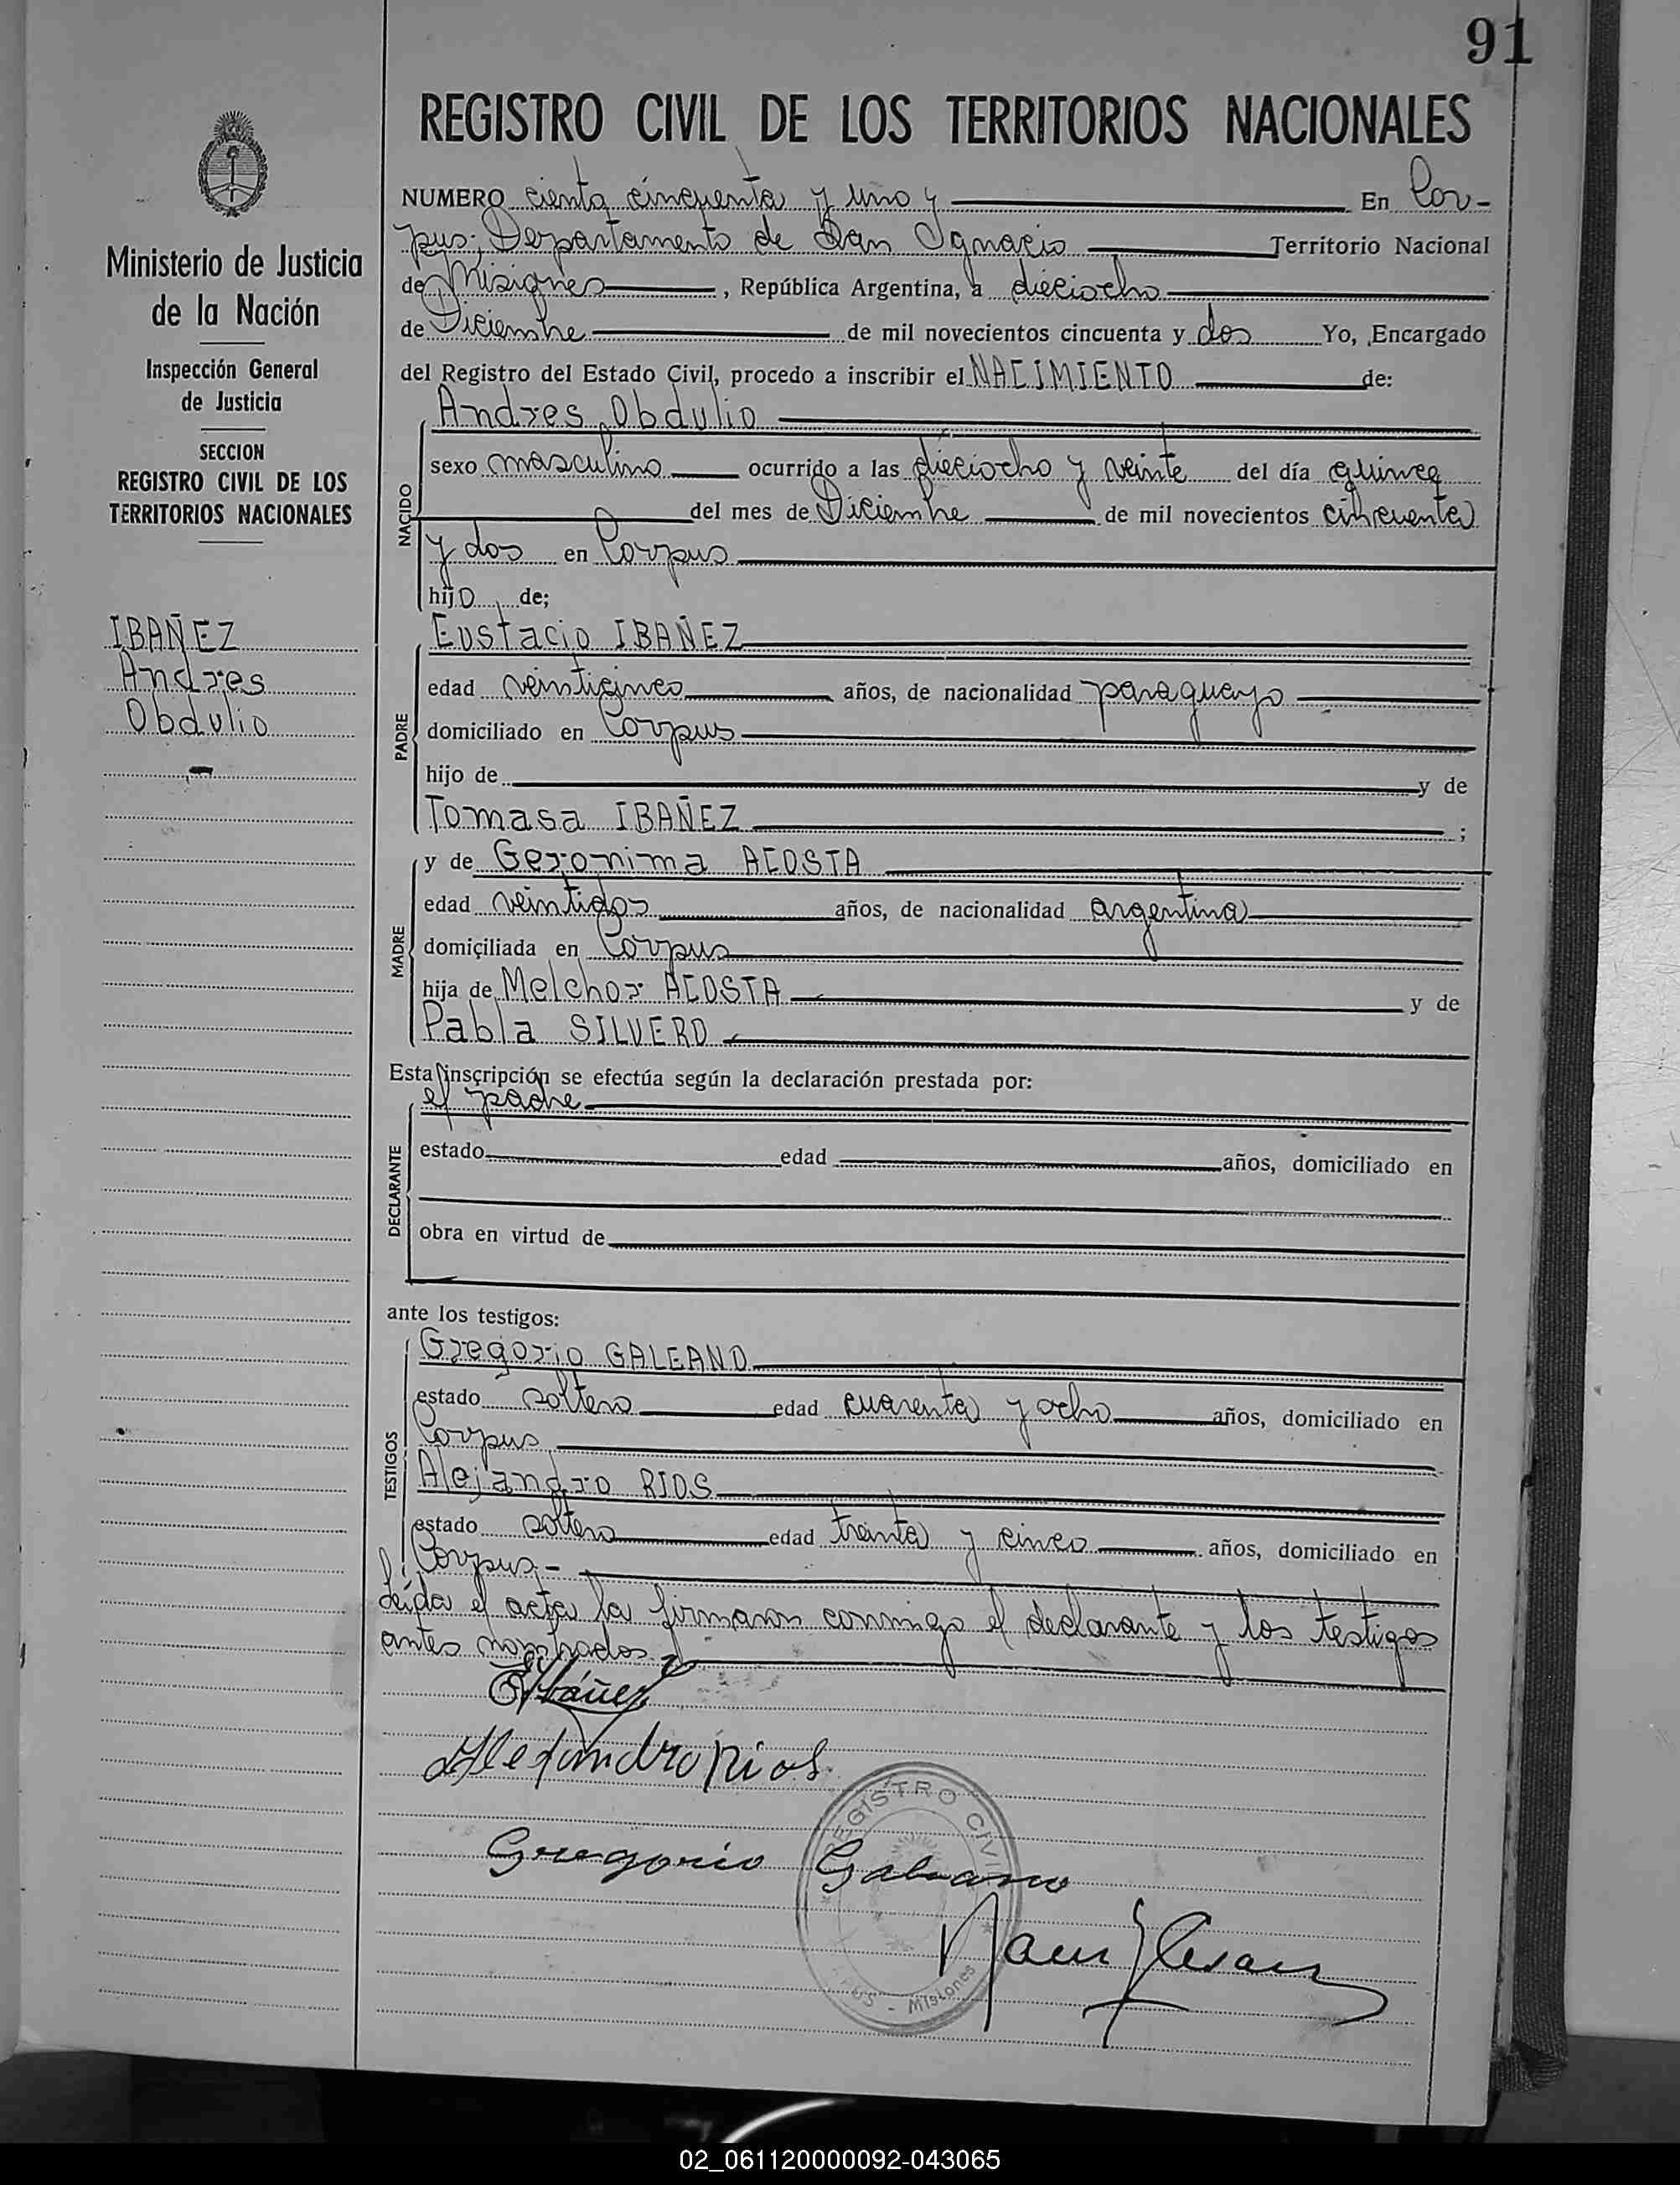 91
REGISTRO CIVIL DE LOS TERRITORIOS NACIONALES
NUMERO ciento cincuenta y uno y En Cor-
pus; Departamento de San Ignacio Territorio Nacional
de Misiones, República Argentina, a dieciocho
de Diciembre de mil novecientos cincuenta y dos Yo, Encargado
del Registro del Estado Civil, procedo a inscribir el NACIMIENTO de:
Andres Obdulio
NACIDO
sexo masculino ocurrido a las dieciocho y veinte del día quince
del mes de Diciembre de mil novecientos cincuenta
y dos en Corpus
hijo de;
Eustacio IBAÑEZ
PADRE
edad veinticinco años, de nacionalidad paraguayo
domiciliado en Corpus
hijo de y de
Tomasa IBAÑEZ ;
MADRE
y de Geronima ACOSTA
edad veintidos años, de nacionalidad argentina
domiciliada en Corpus
hija de Melchor ACOSTA y de
Pabla SILVERO
Esta inscripción se efectúa según la declaración prestada por:
el padre
DECLARANTE
estado edad años, domiciliado en
obra en virtud de
ante los testigos:
TESTIGOS
Gregorio GALEANO
estado soltero edad cuarenta y ocho años, domiciliado en
Corpus
Alejandro RIOS
estado soltero edad treinta y cinco años, domiciliado en
Corpus.-
Leída el acta la firmaron conmigo el declarante y los testigos
antes nombrados.
EIbáñez
Alejandro Rios.
Gregorio Galeano
REGISTRO CIVIL
- Misiones
Ministerio de Justicia
de la Nación
Inspección General
de Justicia
SECCION
REGISTRO CIVIL DE LOS
TERRITORIOS NACIONALES
IBAÑEZ
Andres
Obdulio
-
02_061120000092-043065